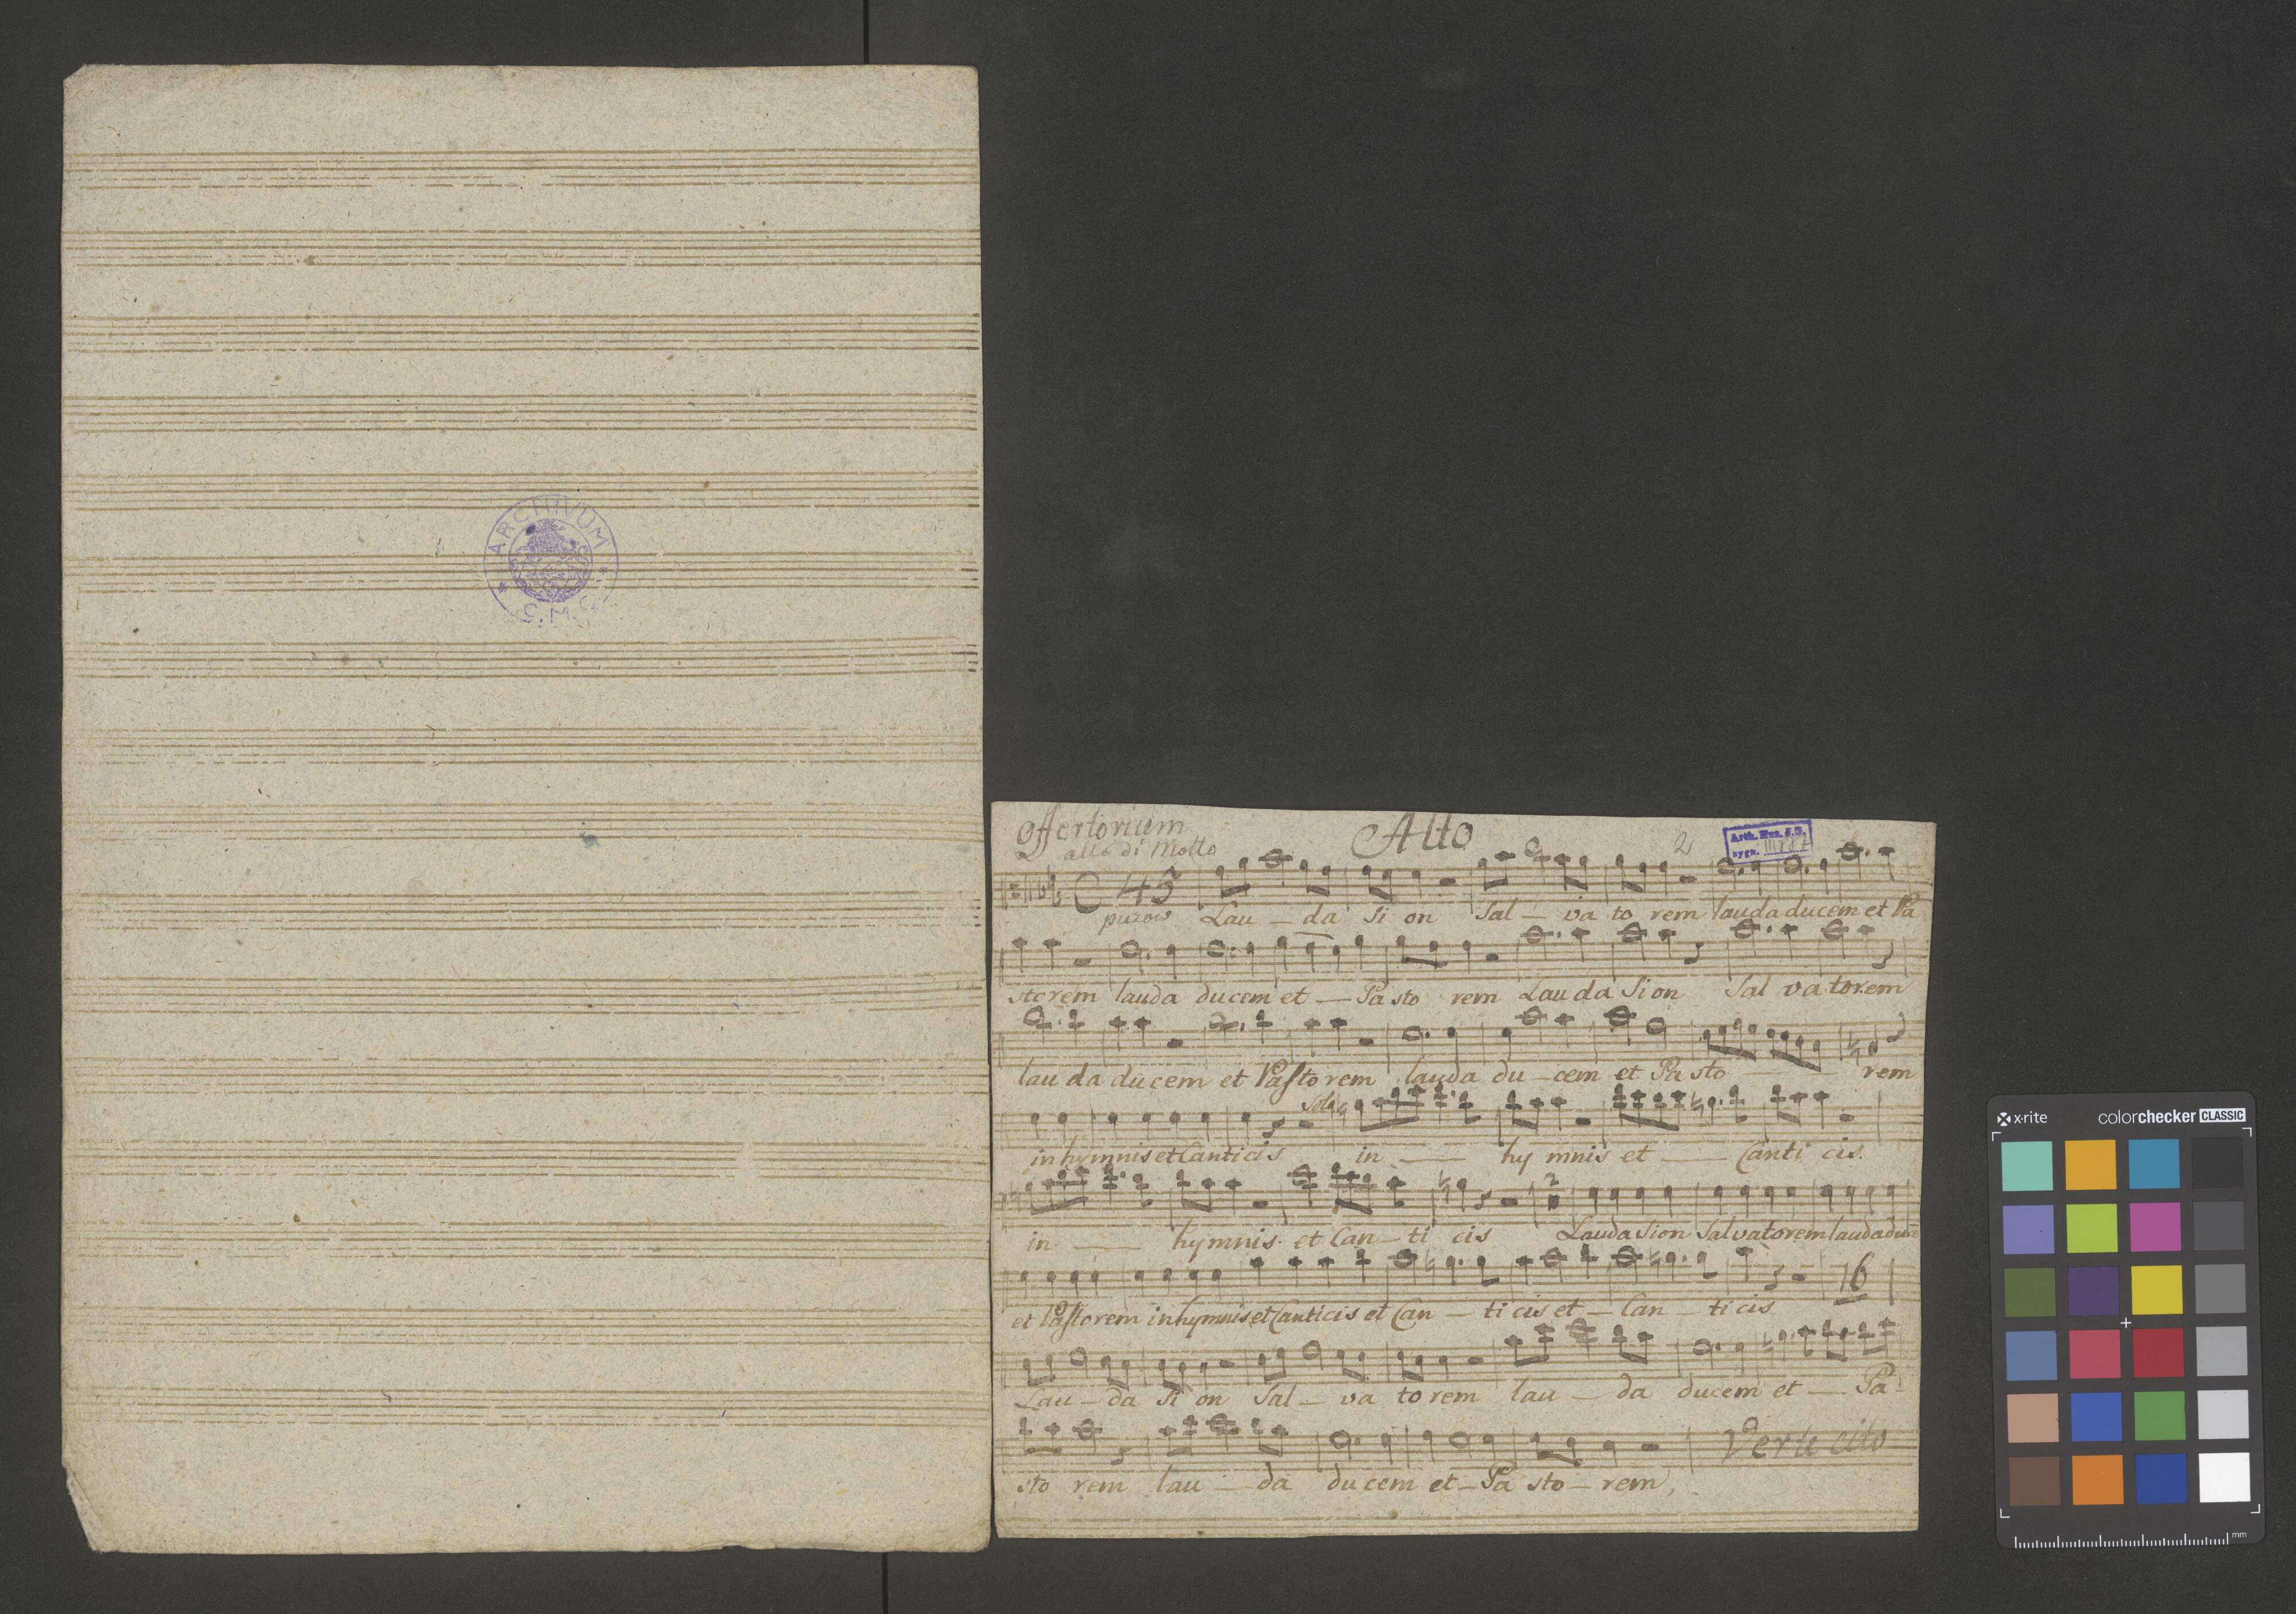 ARCHIVUM
C. M. C.
Offertorium Alto 2
allo di Molto
C 45
Lau – da Si on Sal – va to rem lauda ducem et Pa
storem lauda ducem et — Pa sto rem Lau da Sion Sal va torem
lau da ducem et Pastorem lauda du – cem et Pa sto — rem
Solo
in hymnis et Canticis in — hy mnis et — Canti cis.
2
in — hymnis et Can – ti cis Lauda Sion Salvatorem lauda
16
et Pastorem in hymnis et Canticis et Can – ti cis et – Can – ti cis
Lau – da Si on Sal – va to rem lau – da ducem et — Pa
Verte cito
sto rem lau – da ducem et – Pa sto – rem,
x-rite colorchecker CLASSIC
mm